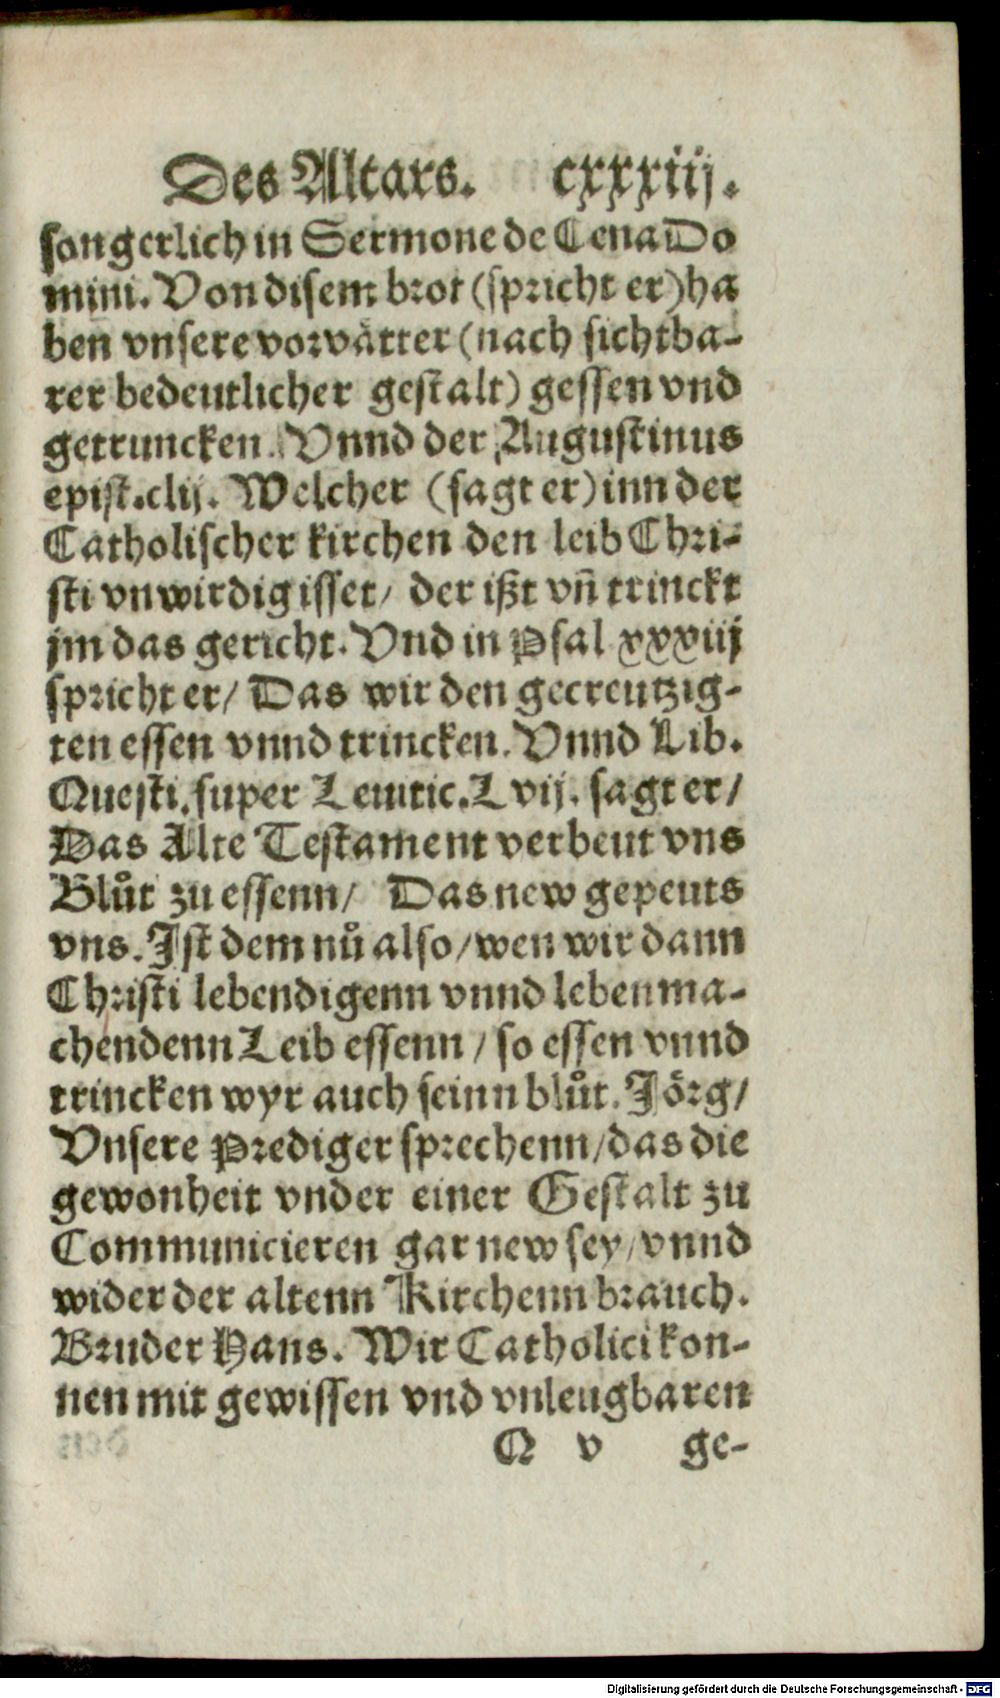 Des Altars. cxxxiij.
songerlich in Sermone de Cena Do
mini. Von disem brot (spricht er) ha
ben vnsere vorvätter (nach sichtba-
rer bedeutlicher gestalt) gessen vnd
getruncken. Vnnd der Augustinus
epist. clij. Welcher (sagt er) inn der
Catholischer kirchen den leib Chri-
sti vnwirdig isset/ der ißt vñ trinckt
jm das gericht. Vnd in Psal xxxiij
spricht er/ Das wir den gecreutzig-
ten essen vnnd trincken. Vnnd Lib.
Questi. super Leuitic. Lvij. sagt er/
Das Alte Testament verbeut vns
Blůt zu essenn/ Das new gepeuts
vns. Ist dem nů also/ wen wir dann
Christi lebendigenn vnnd leben ma-
chendenn Leib essenn/ so essen vnnd
trincken wyr auch seinn blůt. Jörg/
Vnsere Prediger sprechenn/ das die
gewonheit vnder einer Gestalt zu
Communicieren gar new sey/ vnnd
wider der altenn Kirchenn brauch.
Bruder Hans. Wir Catholici kon-
nen mit gewissen vnd vnleugbaren
Q v ge-
Digitalisierung gefördert durch die Deutsche Forschungsgemeinschaft - DFG